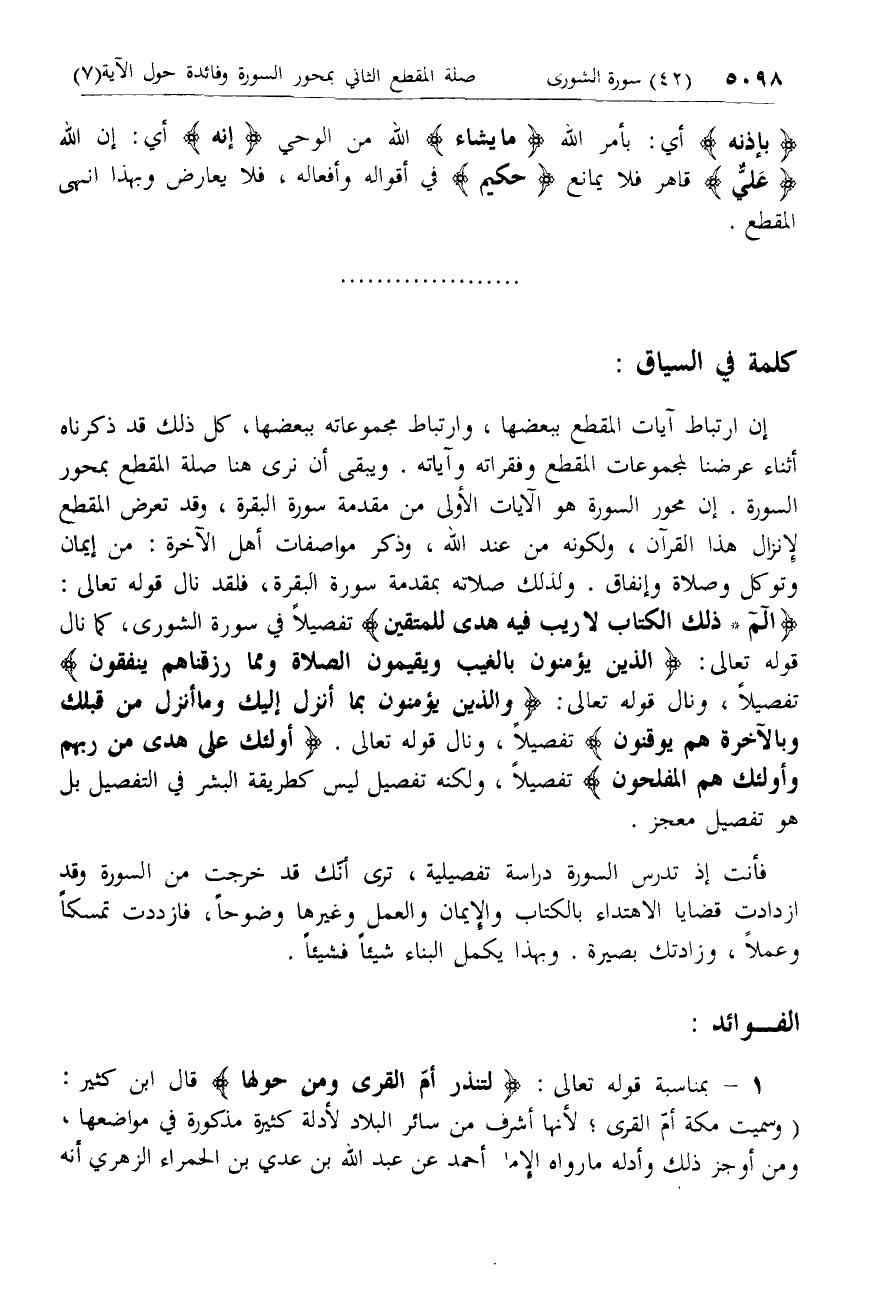 ٥٠٩٨ (٤٢) سورة الشورى صلة المقطع الثاني بمحور السورة وفائدة حول الآية(٧)
﴿ بإذنه ﴾ أي: بأمر الله ﴿ مايشاء ﴾ الله من الوحي ﴿ إنه ﴾ أي: إن الله
﴿ عَليٌّ ﴾ قاهر فلا يمانع ﴿ حكيم ﴾ في أقواله وأفعاله ، فلا يعارض وبهذا انهى
المقطع .
....................
كلمة في السياق :
إن ارتباط آيات المقطع ببعضها ، وارتباط مجموعاته ببعضها، كل ذلك قد ذكرناه
أثناء عرضنا لمجموعات المقطع وفقراته وآياته . ويبقى أن نرى هنا صلة المقطع بمحور
السورة . إن محور السورة هو الآيات الأولى من مقدمة سورة البقرة ، وقد تعرض المقطع
لإنزال هذا القرآن ، ولكونه من عند الله ، وذكر مواصفات أهل الآخرة : من إيمان
وتوكل وصلاة وإنفاق . ولذلك صلاته بمقدمة سورة البقرة، فلقد نال قوله تعالى :
﴿ الٓمٓ * ذلك الكتاب لاريب فيه هدى للمتقين﴾ تفصيلاً في سورة الشورى، كما نال
قوله تعالى: ﴿ الذين يؤمنون بالغيب ويقيمون الصلاة ومما رزقناهم ينفقون ﴾
تفصيلاً ، ونال قوله تعالى: ﴿ والذين يؤمنون بما أنزل إليك وماأنزل من قبلك
وبالآخرة هم يوقنون ﴾ تفصيلاً ، ونال قوله تعالى . ﴿ أولئك على هدى من ربهم
وأولئك هم المفلحون ﴾ تفصيلاً ، ولكنه تفصيل ليس كطريقة البشر في التفصيل بل
هو تفصيل معجز .
فأنت إذ تدرس السورة دراسة تفصيلية ، ترى أنّك قد خرجت من السورة وقد
ازدادت قضايا الاهتداء بالكتاب والإيمان والعمل وغيرها وضوحاً، فازددت تمسكاً
وعملاً ، وزادتك بصيرة . وبهذا يكمل البناء شيئاً فشيئاً .
الفـــوائد :
١ – بمناسبة قوله تعالى : ﴿ لتنذر أمّ القرى ومن حولها ﴾ قال ابن كثير :
( وسميت مكة أمّ القرى ؛ لأنها أشرف من سائر البلاد لأدلة كثيرة مذكورة في مواضعها ،
ومن أوجز ذلك وأدله مارواه الإما أحمد عن عبد الله بن عدي بن الحمراء الزهري أنه